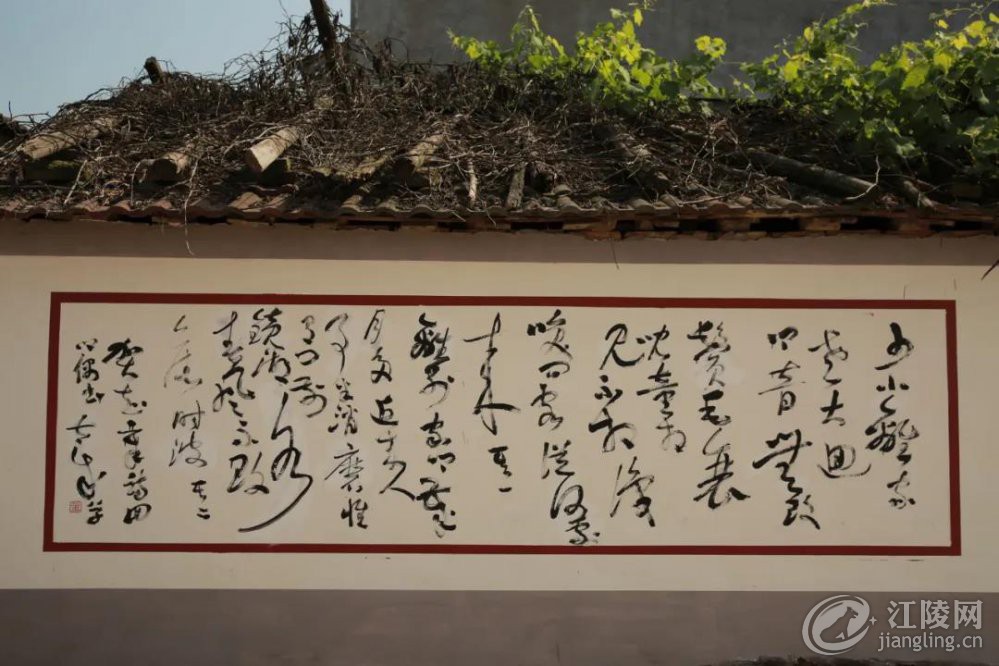 少小離家
老大迴
乡音無改
鬓毛衰
兒童相
见不相識
笑问客從何處
来 其一
離别家乡歲
月多近来人
事半消磨惟
有门前
镜湖水
春風不改
旧时波 其二
贺知章诗回
乡偶书
江陵网
jiangling.cn